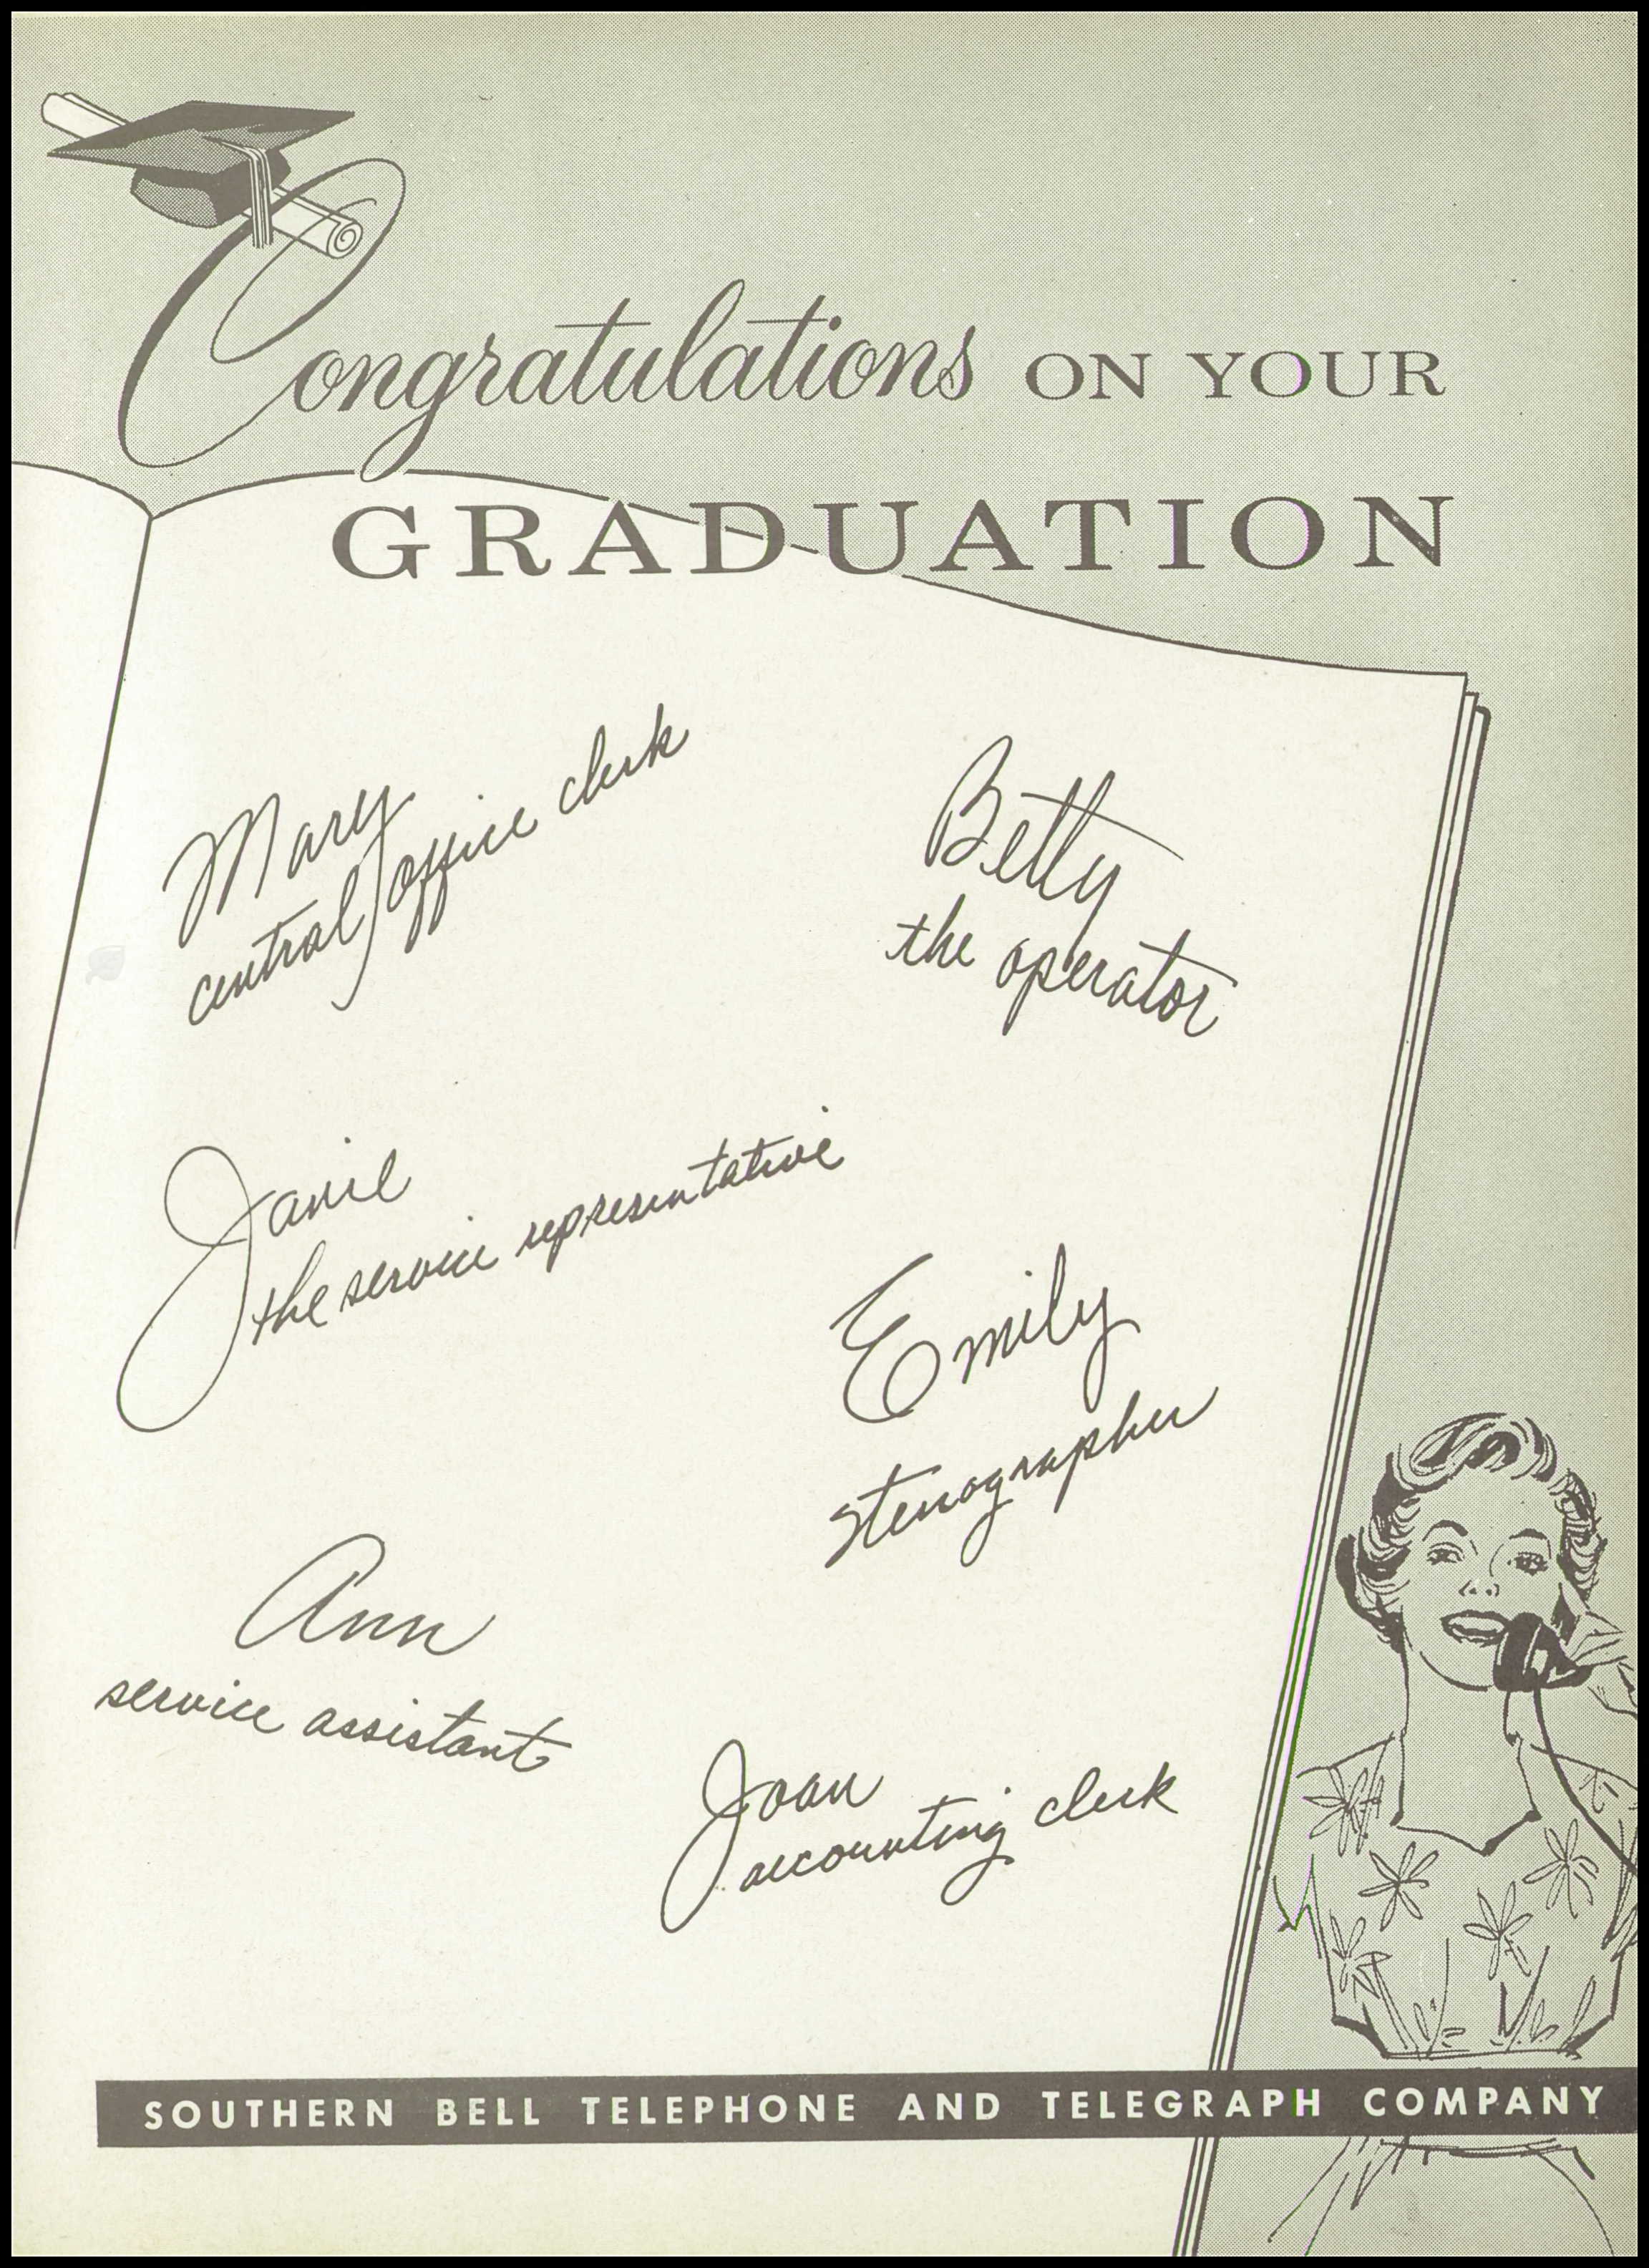 Congratulations ON YOUR
GRADUATION
Mary
central office clerk
Betty
the operator
Janie
the service representative
Emily
stenographer
Ann
service assistant
Joan
accounting clerk
SOUTHERN BELL TELEPHONE AND TELEGRAPH COMPANY